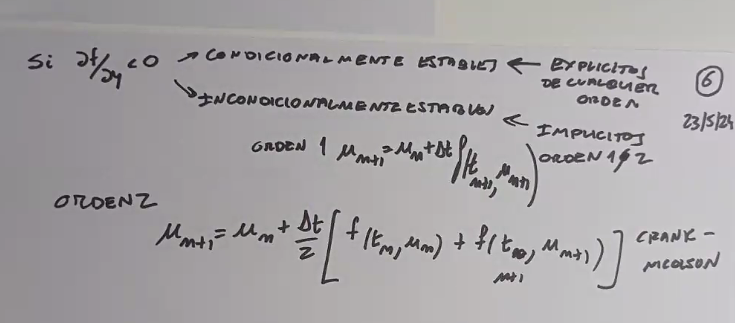 Si ∂f/∂y <0 → CONDICIONALMENTE ESTABLES ← EXPLICITOS DE CUALQUIER ORDEN
6
23/5/24
↘ INCONDICIONALMENTE ESTABLES ← IMPLICITOS ORDEN 1 Ó 2
ORDEN 1 u_{m+1} = u_m + Δt f(t_{m+1}, u_{m+1})
ORDEN 2
u_{m+1} = u_m + Δt/2 [ f(t_m, u_m) + f(t_{m+1}, u_{m+1}) ] CRANK-NICOLSON